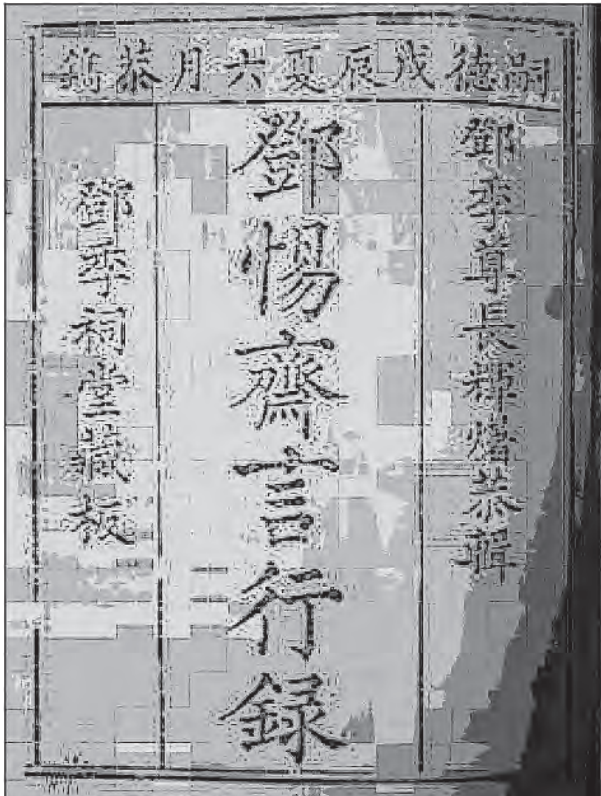 嗣德戊辰夏六月恭鐫
鄧季尊長輝𤏸恭輯
鄧惕齋言行錄
鄧季祠堂藏板